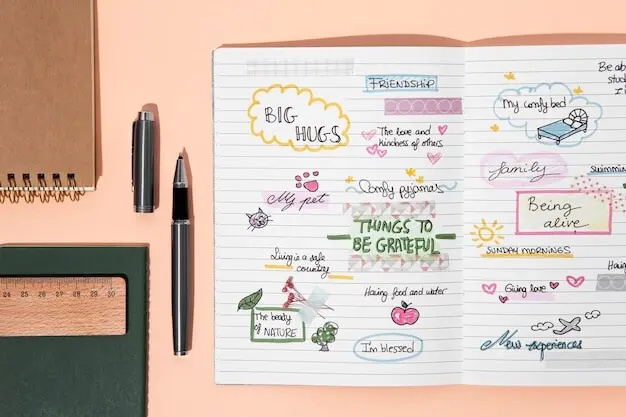 FRIENDSHIP
BIG
HUGS
The love and
kindness of others
My pet
Comfy pyjamas
THINGS TO
BE GRATEFUL
Living is a safe
country
Having food and water
The beauty
of NATURE
I'm blessed
Be
My comfy bed
family
Being
alive
SUNDAY MORNINGS
Giving love
New experiences
24 25 26 27 28 29 30